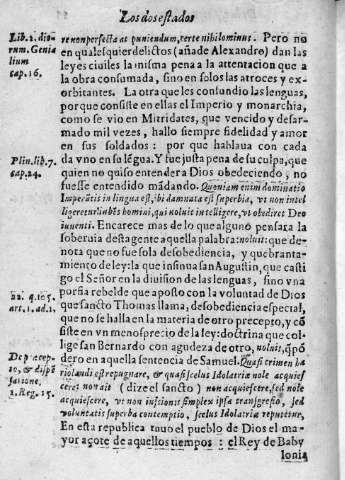 Los dos estados
Lib. 2. die-
rum. Genia
lium
cap. 16.
re non perfecta ac puniendum, certe nihilominus. Pero no
en qualesquier delictos (añade Alexandro) dan las
leyes ciuiles la misma pena a la attentacion que a
la obra consumada, sino en solos las atroces y ex-
orbitantes. La otra que les confundio las lenguas,
porque consiste en ellas el Imperio y monarchia,
como se vio en Mitridates, que vencido y desar-
mado mil vezes, hallo siempre fidelidad y amor
en sus soldados: por que hablaua con cada
Plin. lib. 7.
cap. 24.
da vno en su légua. Y fue justa pena de su culpa, que
quien no quiso entender a Dios obedeciendo, no
fuesse entendido mãdando. Quoniam enim dominatio
Imperãtis in lingua est, ibi damnata est superbia, vt non intel
ligeretur iubẽs homini, qui noluit intelligere, vt obediret Deo
iuuenti. Encarece mas de lo que alguno pensara la
soberuia desta gente aquella palabra: noluit: que de-
nota que no fue sola desobediencia, y quebranta-
miento de ley: la que insinua san Augustin, que casti
go el Señor en la diuision de las lenguas, sino vna
22. q. 105.
art. 1. ad. 1.
porfia rebelde que aposto con la voluntad de Dios
que sancto Thomas llama, desobediencia especial,
que no se halla en la materia de otro precepto, y cõ
siste en vn menosprecio de la ley: doctrina que col-
lige san Bernardo con agudeza de otro, noluit, q̃ põ
De præcep-
to, & dispẽ
satione.
1. Reg. 15.
dero en aquella sentencia de Samuel. Quasi crimen ha
riolandi est repugnare, & quasi scelus Idolatriæ nole acquies
cere: non ait (dize el sancto) non acquiescere, sed nole
acquiescere, vt non iussionis simplex ipsa transgresio, sed
voluntatis superba contemptio, scelus Idolatriæ reputetur,
En esta republica tuuo el pueblo de Dios el ma-
yor açote de aquellos tiempos: el Rey de Baby
lonia